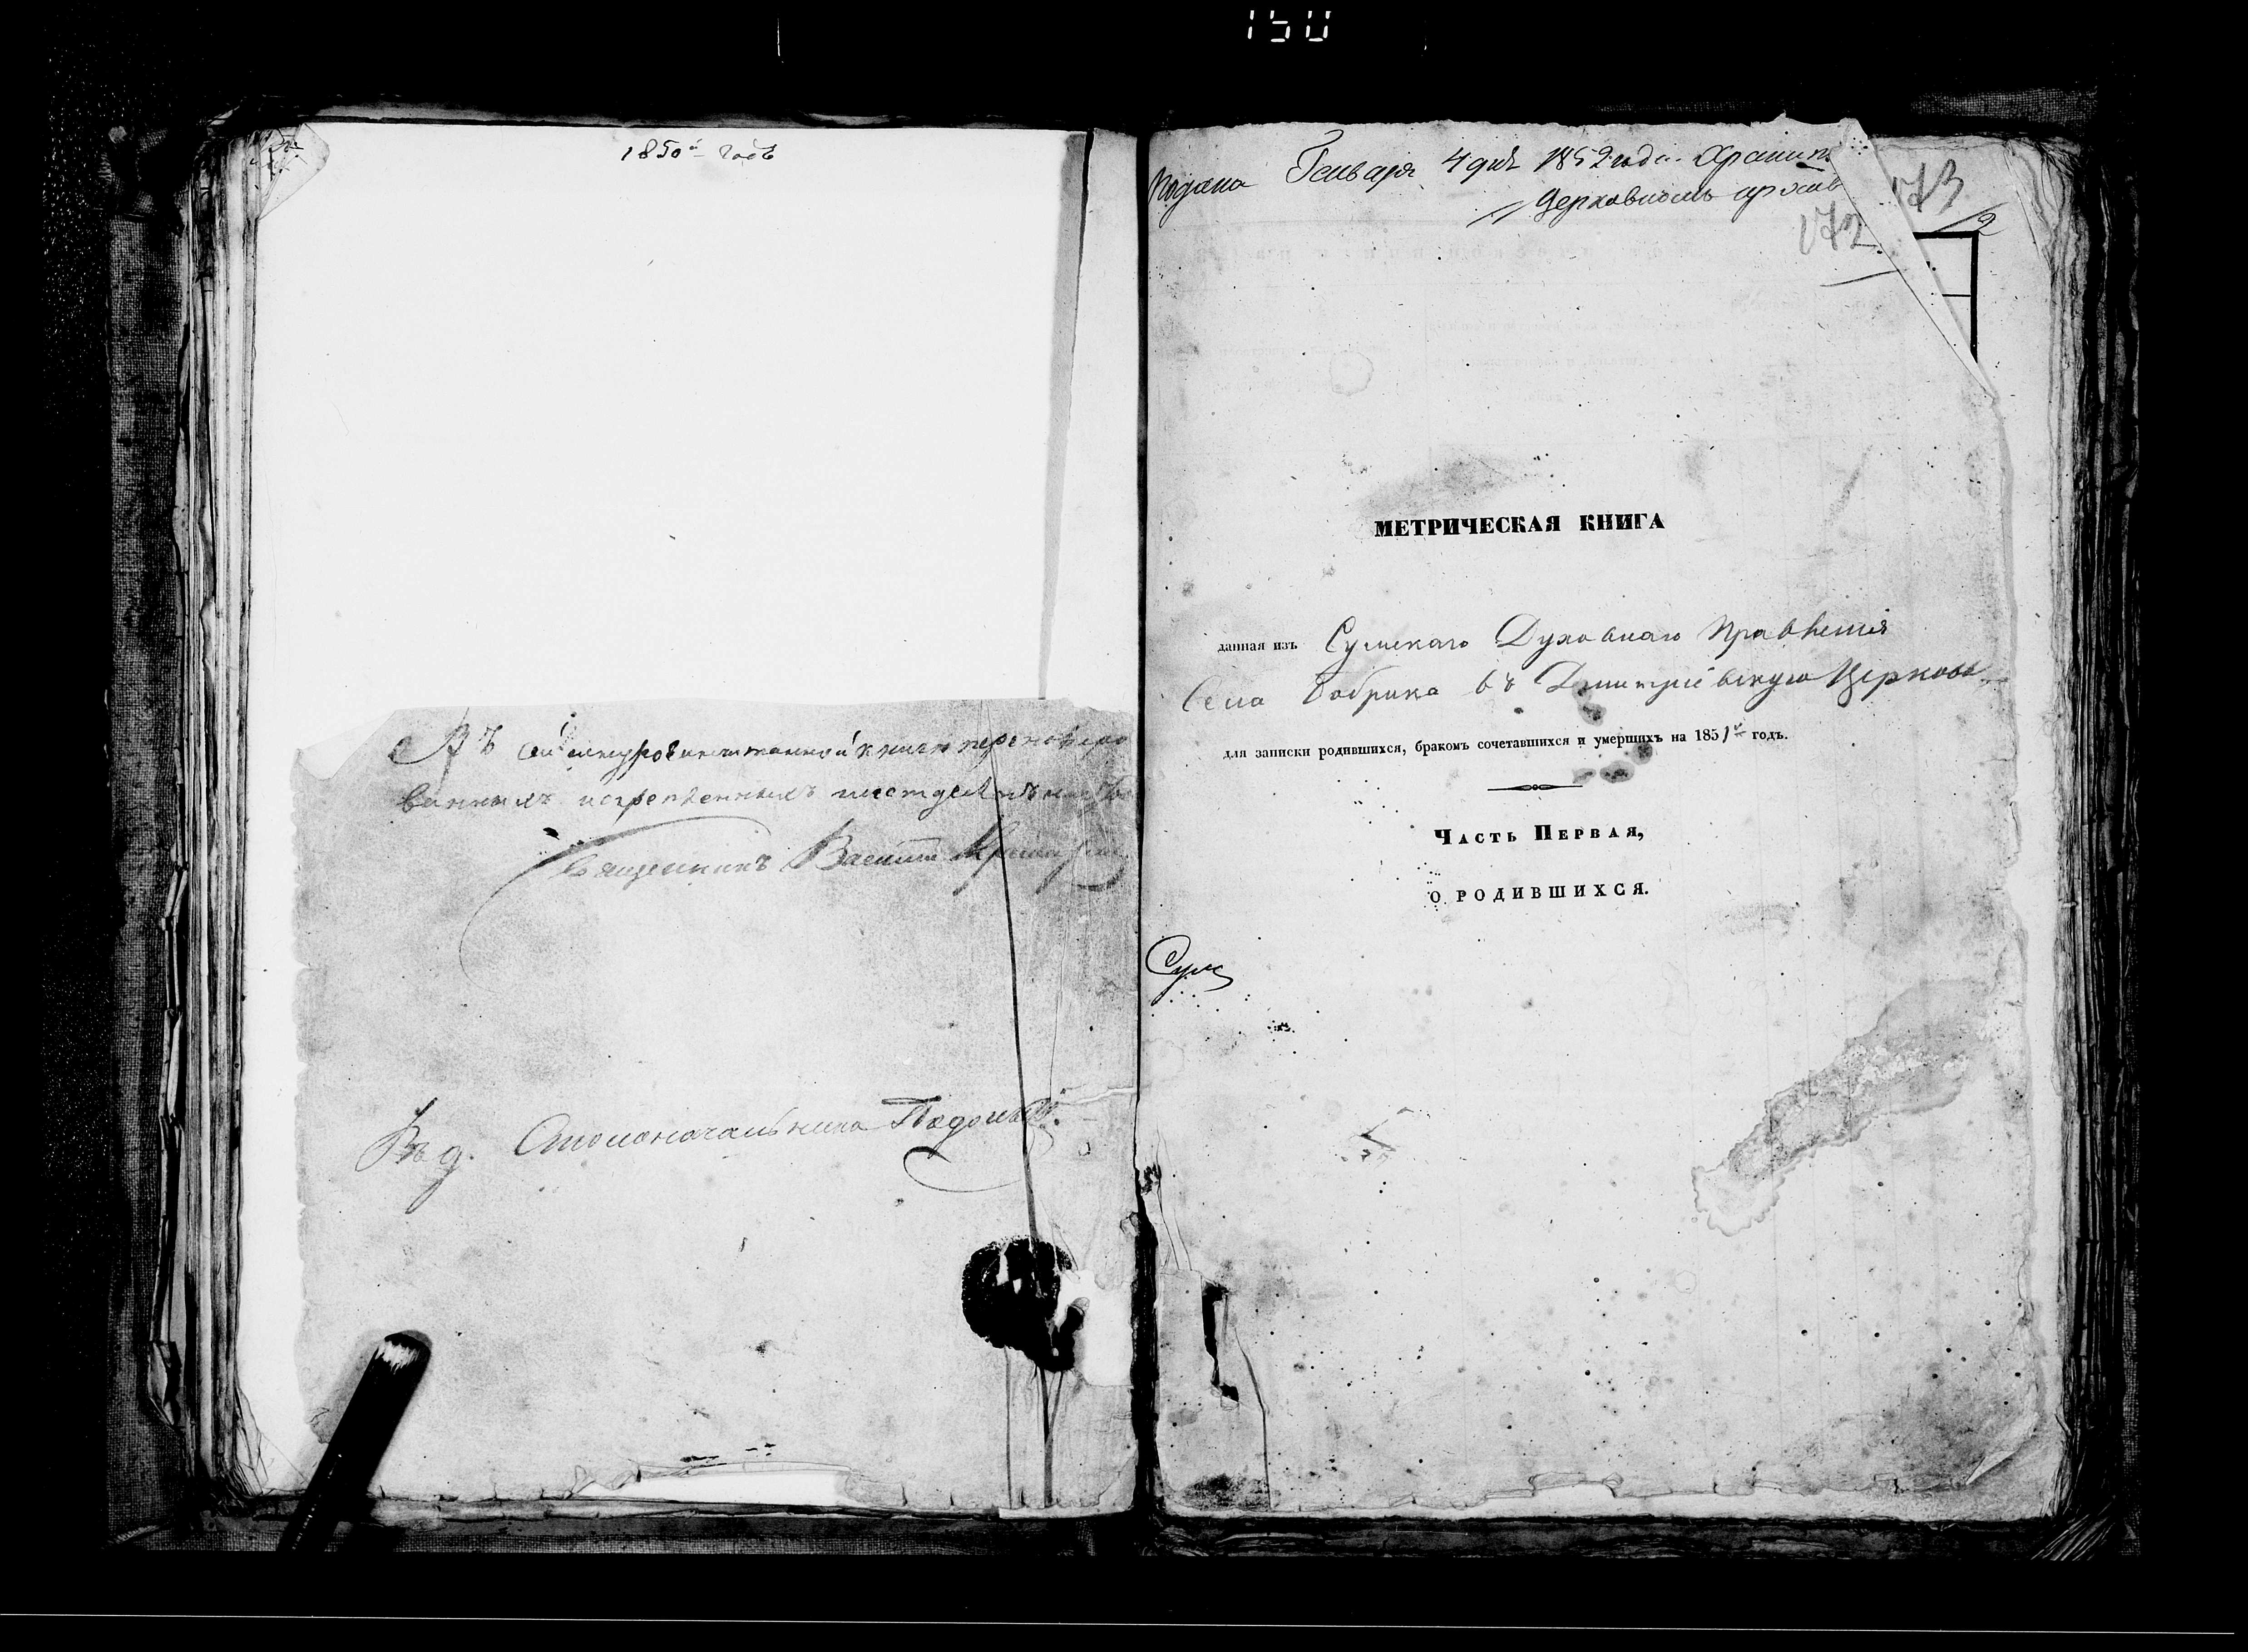 150
1850й годъ
Въ сей шнуровой книгѣ перенумеро
ванныхъ и скрепленныхъ шестдесятъ
Священникъ Василій
Въ д. Столоначальника
Подана Генваря 4 дня 1852 года. Хранит
Церковномъ архив
173
172
МЕТРИЧЕСКАЯ КНИГА
данная изъ Сумскаго Духовнаго Правленія
Села Бобрика въ Димитріевскую Церковь
для записки родившихся, бракомъ сочетавшихся и умершихъ на 1851й годъ.
ЧАСТЬ ПЕРВАЯ,
О РОДИВШИХСЯ.
Сум